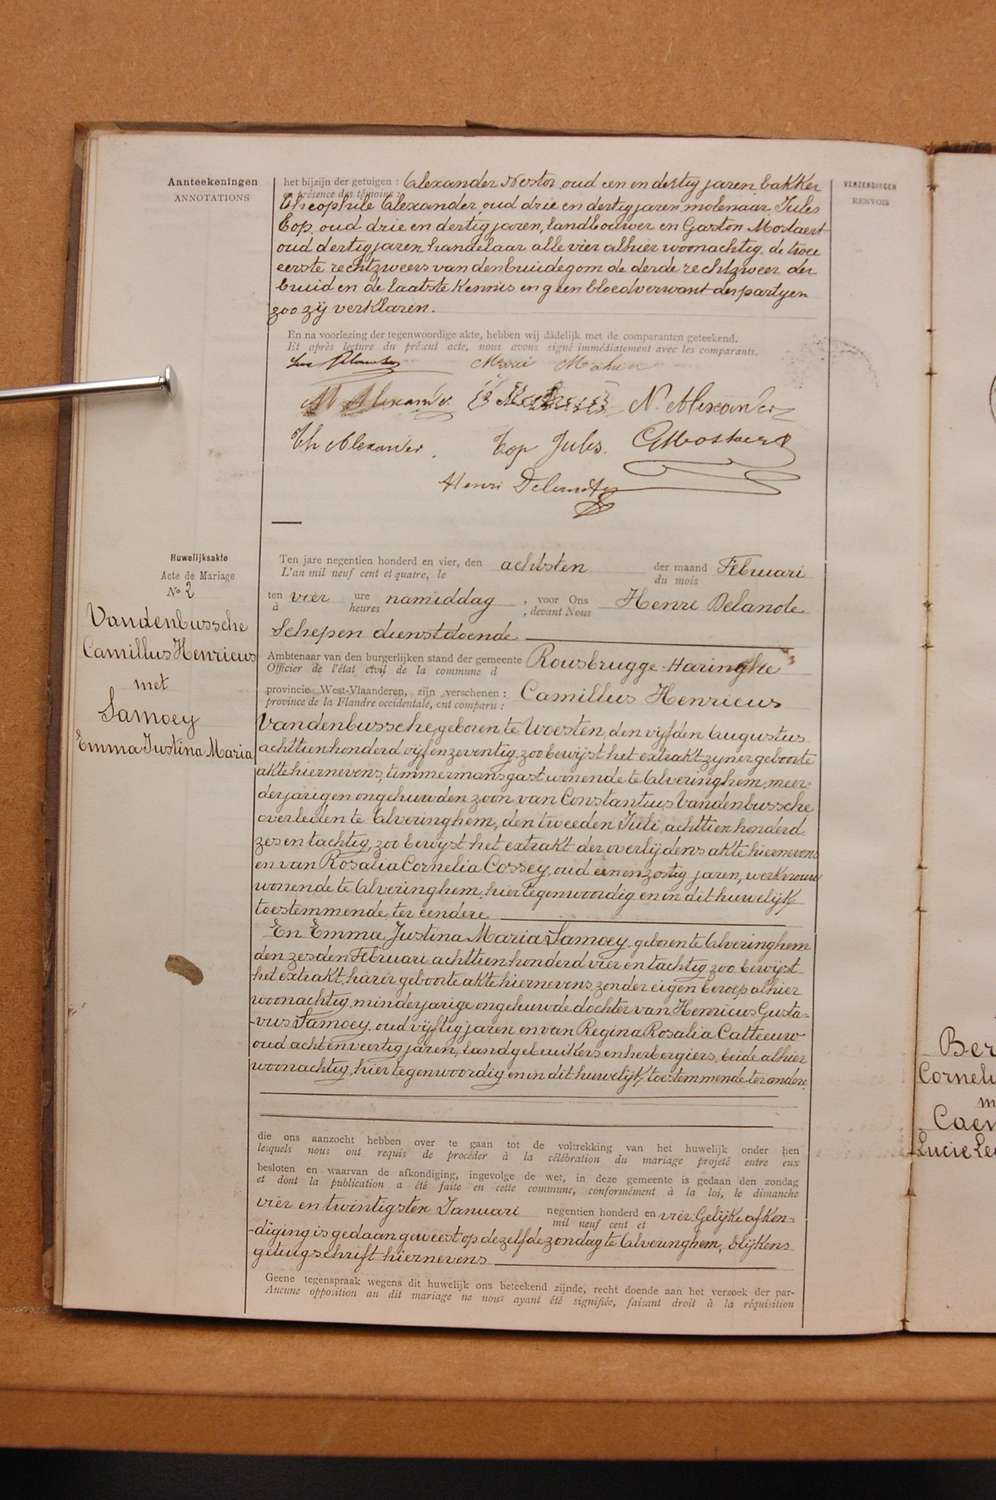 Aanteekeningen
ANNOTATIONS
VERZENDINGEN
RENVOIS
het bijzijn der getuigen : Alexander Nestor, oud een en dertig jaren bakker
en présence des témoins :
Theophile Alexander, oud drie en dertig jaren, molenaar Jules
Top, oud drie en dertig jaren, landbouwer en Gaston Mostaert
oud dertig jaren, handelaar alle vier alhier woonachtig, de twee
eerste rechtzweers van den bruidegom de derde rechtzweer der
bruid en de laatste kennis en geen bloedverwant der partyen
zoo zij verklaren.
En na voorlezing der tegenwoordige akte, hebben wij dadelijk met de comparanten geteekend.
Et après lecture du présent acte, nous avons signé immédiatement avec les comparants.
M. Alexander N. Alexander
Th Alexander. Top Jules. G Mostaert
Henri Delanote
Huwelijksakte
Acte de Mariage
No 2
Vandenbussche
Camillus Henricus
met
Samoey
Emma Justina Maria
Ten jare negentien honderd en vier, den achtsten der maand Februari
L'an mil neuf cent et quatre, le du mois
ten vier ure namiddag , voor Ons Henri Delanote
à heures , devant Nous
Schepen dienstdoende
Ambtenaar van den burgerlijken stand der gemeente Rousbrugge-Haringhe
Officier de l'état civil de la commune d
provincie West-Vlaanderen, zijn verschenen : Camillus Henricus
province de la Flandre occidentale, ont comparu :
Vandenbussche, geboren te Woesten, den vijfden Augustus
achttien honderd vijf en zeventig, zoo bewijst het extrakt zyner geboorte
akte hiernevens, timmermansgast wonende te Alveringhem, meer-
derjarigen ongehuwden zoon van Constantius Vandenbussche
overleden te Alveringhem, den tweeden Juli, achttien honderd
zes en tachtig, zoo bewyst het extrakt der overlijdens akte hiernevens
en van Rosalia Cornelia Cossey, oud een en zestig jaren, werkvrouw
wonende te Alveringhem, hier tegenwoordig en in dit huwelijk
toestemmende, ter eendere
En Emma Justina Maria Samoey, geboren te Alveringhem
den zesden Februari achttien honderd vier en tachtig zoo bewijst
het extrakt harer geboorte akte hiernevens, zonder eigen beroep alhier
woonachtig, minderjarige ongehuwde dochter van Henricus Gusta-
-vus Samoey, oud vijftig jaren en van Regina Rosalia Catteeuw
oud acht en veertig jaren, landgebruikers en herbergiers, beide alhier
woonachtig, hier tegenwoordig en in dit huwelijk toestemmende ter andere
die ons aanzocht hebben over te gaan tot de voltrekking van het huwelijk onder hen
lesquels nous ont requis de procéder à la célébration du mariage projeté entre eux
besloten en waarvan de afkondiging, ingevolge de wet, in deze gemeente is gedaan den zondag
et dont la publication a été faite en cette commune, conformément à la loi, le dimanche
vier en twintigsten Januari negentien honderd en vier. Gelijke afkon-
mil neuf cent et
-diging is gedaan geweest op dezelfde zondag te Alveringhem, blijkens
getuigschrift hiernevens
Geene tegenspraak wegens dit huwelijk ons beteekend zijnde, recht doende aan het verzoek der par-
Aucune opposition au dit mariage ne nous ayant été signifiée, faisant droit à la réquisition